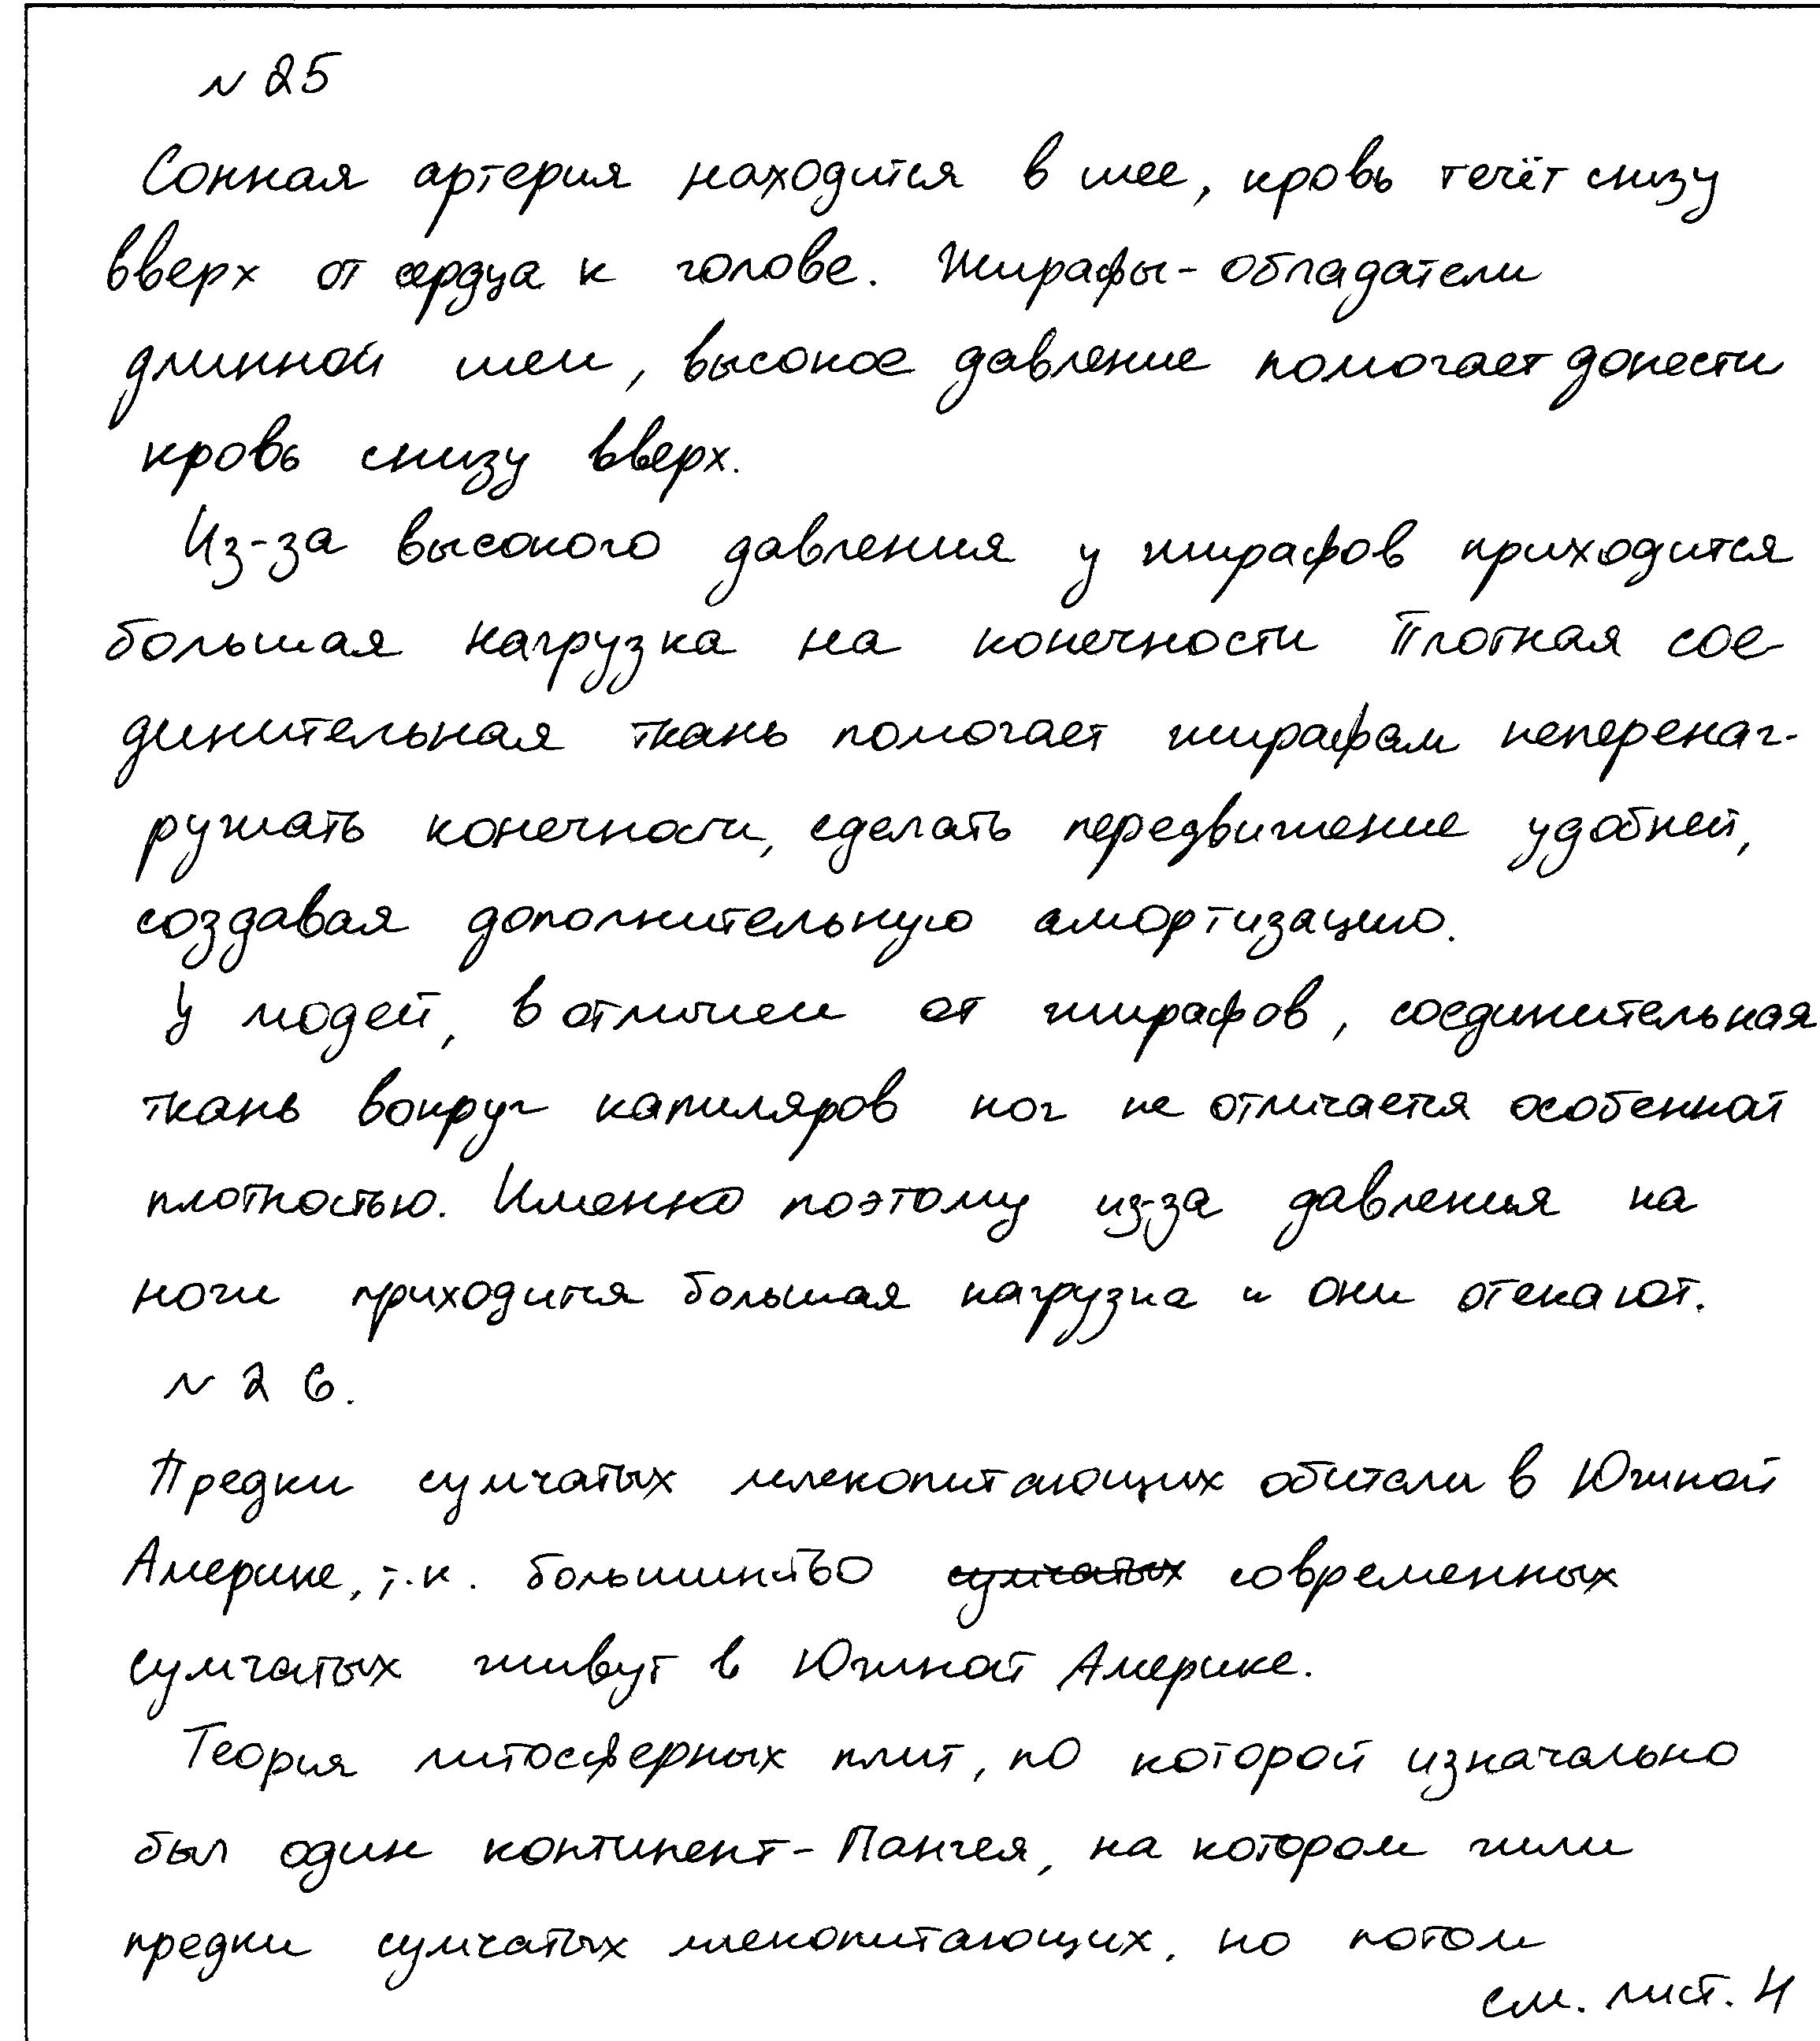 № 25
Сонная артерия находится в шее, кровь течёт снизу
вверх от сердца к голове. Жирафы - обладатели
длинной шеи, высокое давление помогает донести
кровь снизу вверх.
Из-за высокого давления у жирафов приходится
большая нагрузка на конечности Плотная сое-
динительная ткань помогает жирафам неперенаг-
ружать конечности, сделать передвижение удобней,
создавая дополнительную амортизацию.
У людей, в отличии от жирафов, соединительная
ткань вокруг капиляров ног не отличается особенной
плотностью. Именно поэтому из-за давления на
ноги приходится большая нагрузка и они отекают.
№ 26.
Предки сумчатых млекопитающих обитали в Южной
Америке, т.к. большинство сумчатых современных
сумчатых живут в Южной Америке.
Теория литосферных плит, по которой изначально
был один континент - Пангея, на котором жили
предки сумчатых млекопитающих, но потом
см. лист. 4